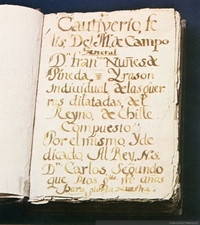 Cautiverio, fe
lis, Del M. de Campo
General
Dn. fran.co Nuñes de
Pineda Y rason
Indiuidual de las guer
ras dilatadas, del
Reyno, de Chille
Compuesto
Por el mismo, Y de
dicado, Al Rey N. S.
Dn. Carlos, Segundo
que Dios g.de ms. años